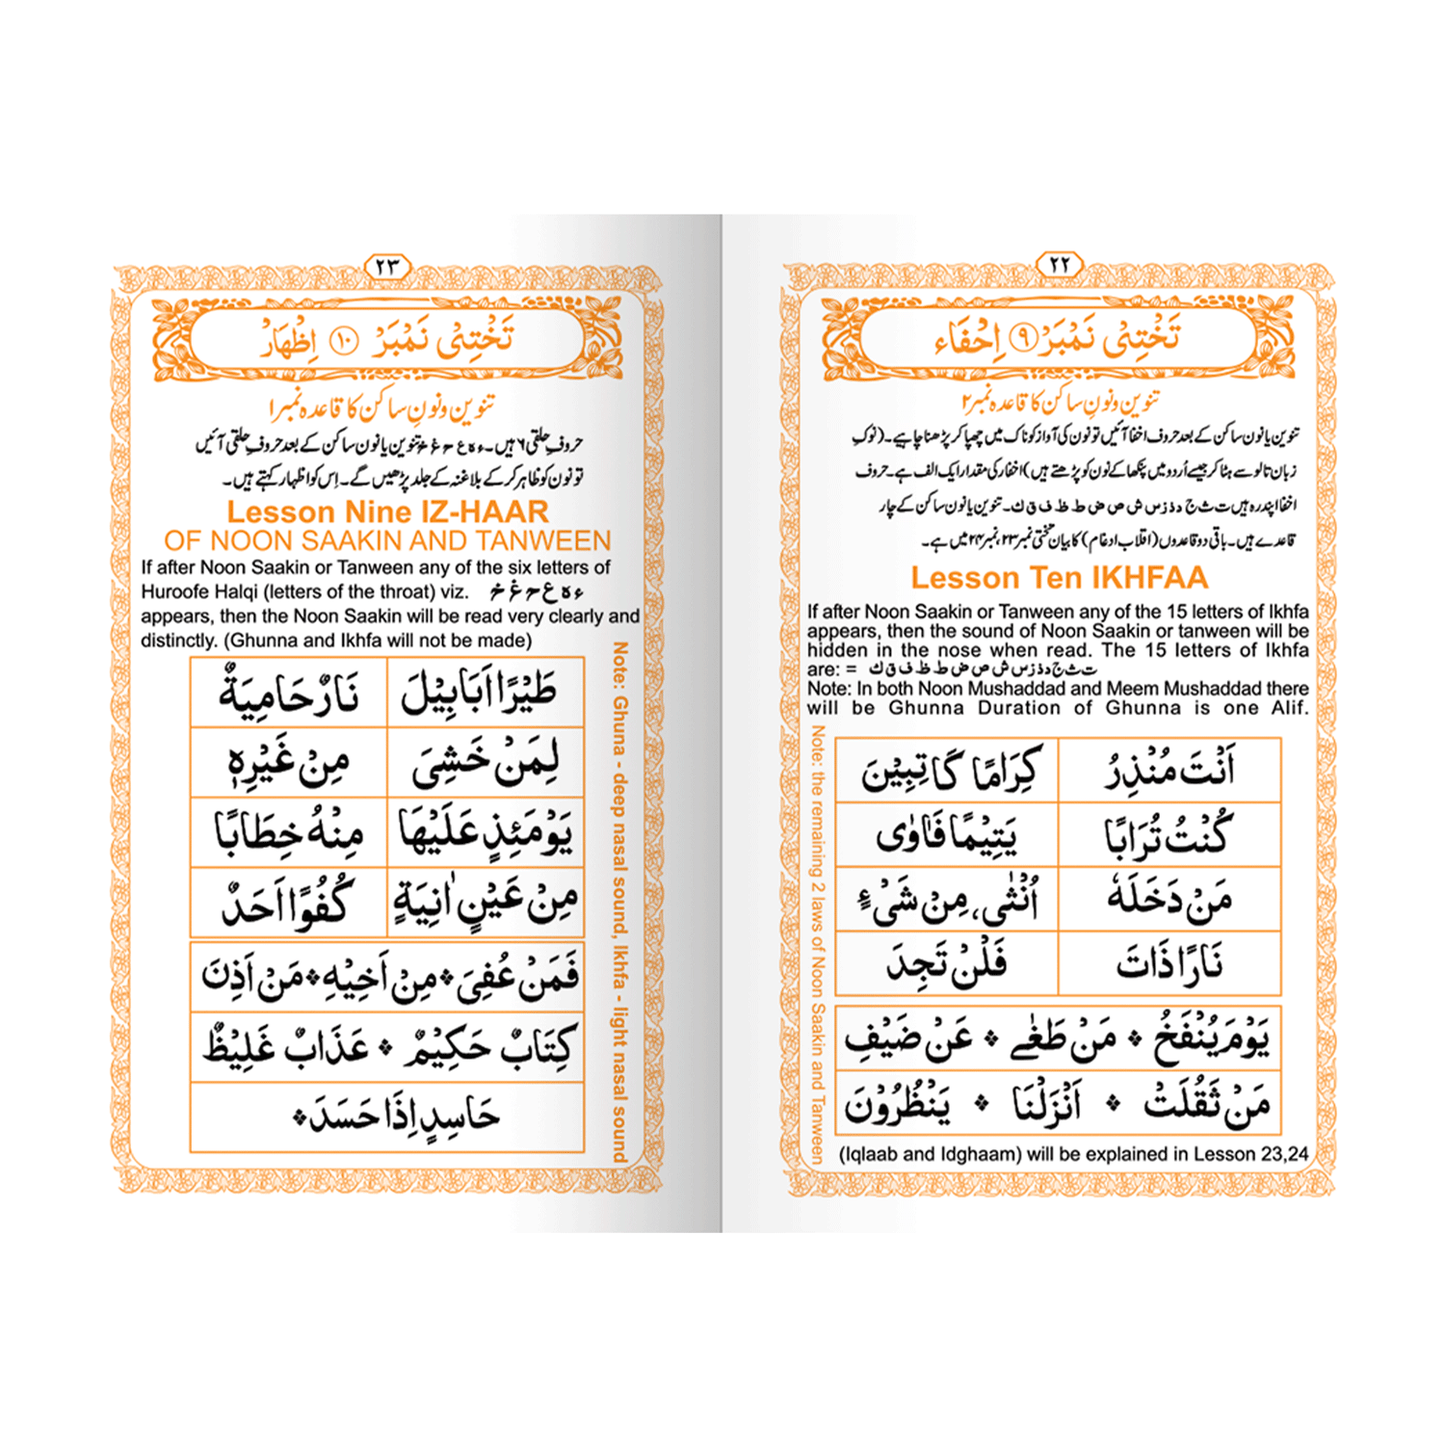 ٢٢
تَخْتِیْ نَمْبَرْ ٩ اِخْفَاء
تنوین و نونِ ساکن کا قاعدہ نمبر ۲
تنوین یا نون ساکن کے بعد حروف اخفا آئیں تو نون کی آواز کو ناک میں چھپا کر پڑھنا چاہیے۔ (نوکِ
زبان تالو سے ہٹا کر جیسے اُردو میں پنکھا کے نون کو پڑھتے ہیں) اخفار کی مقدار ایک الف ہے۔ حروف
اخفا پندرہ ہیں ت ث ج د ذ ز س ش ص ض ط ظ ف ق ك۔ تنوین یا نون ساکن کے چار
قاعدے ہیں۔ باقی دو قاعدوں (اقلاب ادغام) کا بیان تختی نمبر ۲۳، نمبر ۲۴ میں ہے۔
Lesson Ten IKHFAA
If after Noon Saakin or Tanween any of the 15 letters of Ikhfa
appears, then the sound of Noon Saakin or tanween will be
hidden in the nose when read. The 15 letters of Ikhfa
are: = ت ث ج د ذ ز س ش ص ض ط ظ ف ق ك
Note: In both Noon Mushaddad and Meem Mushaddad there
will be Ghunna Duration of Ghunna is one Alif.
اَنْتَ مُنْذِرُ كِرَامًا كَاتِبِيْنَ
كُنْتُ تُرَابًا يَتِيْمًا فَاٰوٰى
مَنْ دَخَلَهٗ اُنْثٰى، مِنْ شَیْءٍ
نَارًا ذَاتَ فَلَنْ تَجِدَ
يَوْمَ يُنْفَخُ ❖ مَنْ طَغٰے ❖ عَنْ ضَيْفِ
مَنْ ثَقُلَتْ ❖ اَنْزَلْنَا ❖ يَنْظُرُوْنَ
(Iqlaab and Idghaam) will be explained in Lesson 23,24
Note: the remaining 2 laws of Noon Saakin and Tanween
٢٣
تَخْتِیْ نَمْبَرْ ١٠ اِظْهَارْ
تنوین و نونِ ساکن کا قاعدہ نمبر ۱
حروفِ حلقی ۶ ہیں۔ ء ہ ع ح غ خ تنوین یا نون ساکن کے بعد حروفِ حلقی آئیں
تو نون کو ظاہر کر کے بلا غنہ کے جلد پڑھیں گے۔ اِس کو اظہار کہتے ہیں۔
Lesson Nine IZ-HAAR
OF NOON SAAKIN AND TANWEEN
If after Noon Saakin or Tanween any of the six letters of
Huroofe Halqi (letters of the throat) viz. ء ہ ع ح غ خ
appears, then the Noon Saakin will be read very clearly and
distinctly. (Ghunna and Ikhfa will not be made)
طَيْرًا اَبَابِيْلَ نَارٌ حَامِيَةٌ
لِمَنْ خَشِیَ مِنْ غَيْرِهٖ
يَوْمَئِذٍ عَلَيْهَا مِنْهُ خِطَابًا
مِنْ عَيْنٍ اٰنِيَةٍ كُفُوًا اَحَدٌ
فَمَنْ عُفِیَ ❖ مِنْ اَخِيْهِ ❖ مَنْ اَذِنَ
كِتَابٌ حَكِيْمٌ ❖ عَذَابٌ غَلِيْظٌ
حَاسِدٍ اِذَا حَسَدَ ❖
Note: Ghuna - deep nasal sound, Ikhfa - light nasal sound